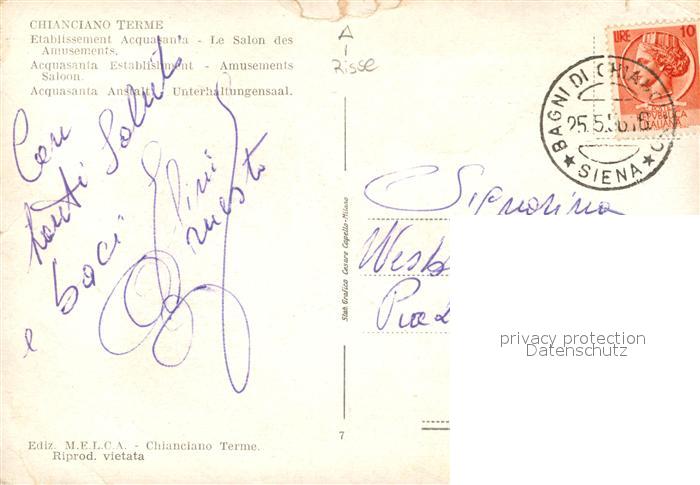 CHIANCIANO TERME
Etablissement Acquasanta - Le Salon des
Amusements.
Acquasanta Establishment - Amusements
Saloon.
Acquasanta Anstalt - Unterhaltungensaal.
Con
tanti Saluti
e baci
Ediz. M.E.L.C.A. - Chianciano Terme.
Riprod. vietata
Stab. Grafico Cesare Capello - Milano
7
A
Risse
LIRE 10
BAGNI DI
SIENA
Signorina
privacy protection
Datenschutz